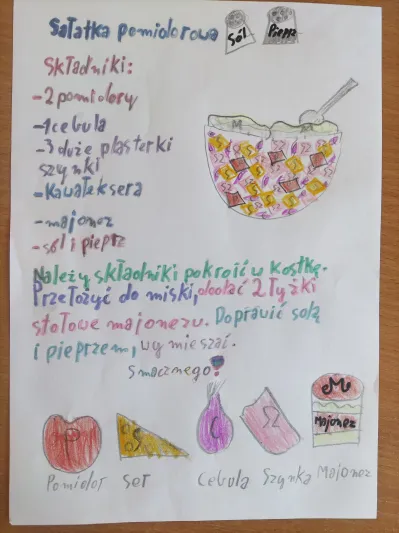 Sałatka pomidorowa
Sól
Pieprz
Składniki:
-2 pomidory
-1 cebula
-3 duże plasterki
szynki
-Kawałek sera
-majonez
-sól i pieprz
Należy składniki pokroić w kostkę.
Przełożyć do miski, dodać 2 łyżki
stołowe majonezu. Doprawić solą
i pieprzem, wymieszać.
Smacznego!
P
S
C
eM
Majonez
Pomidor
Ser
Cebula
Szynka
Majonez